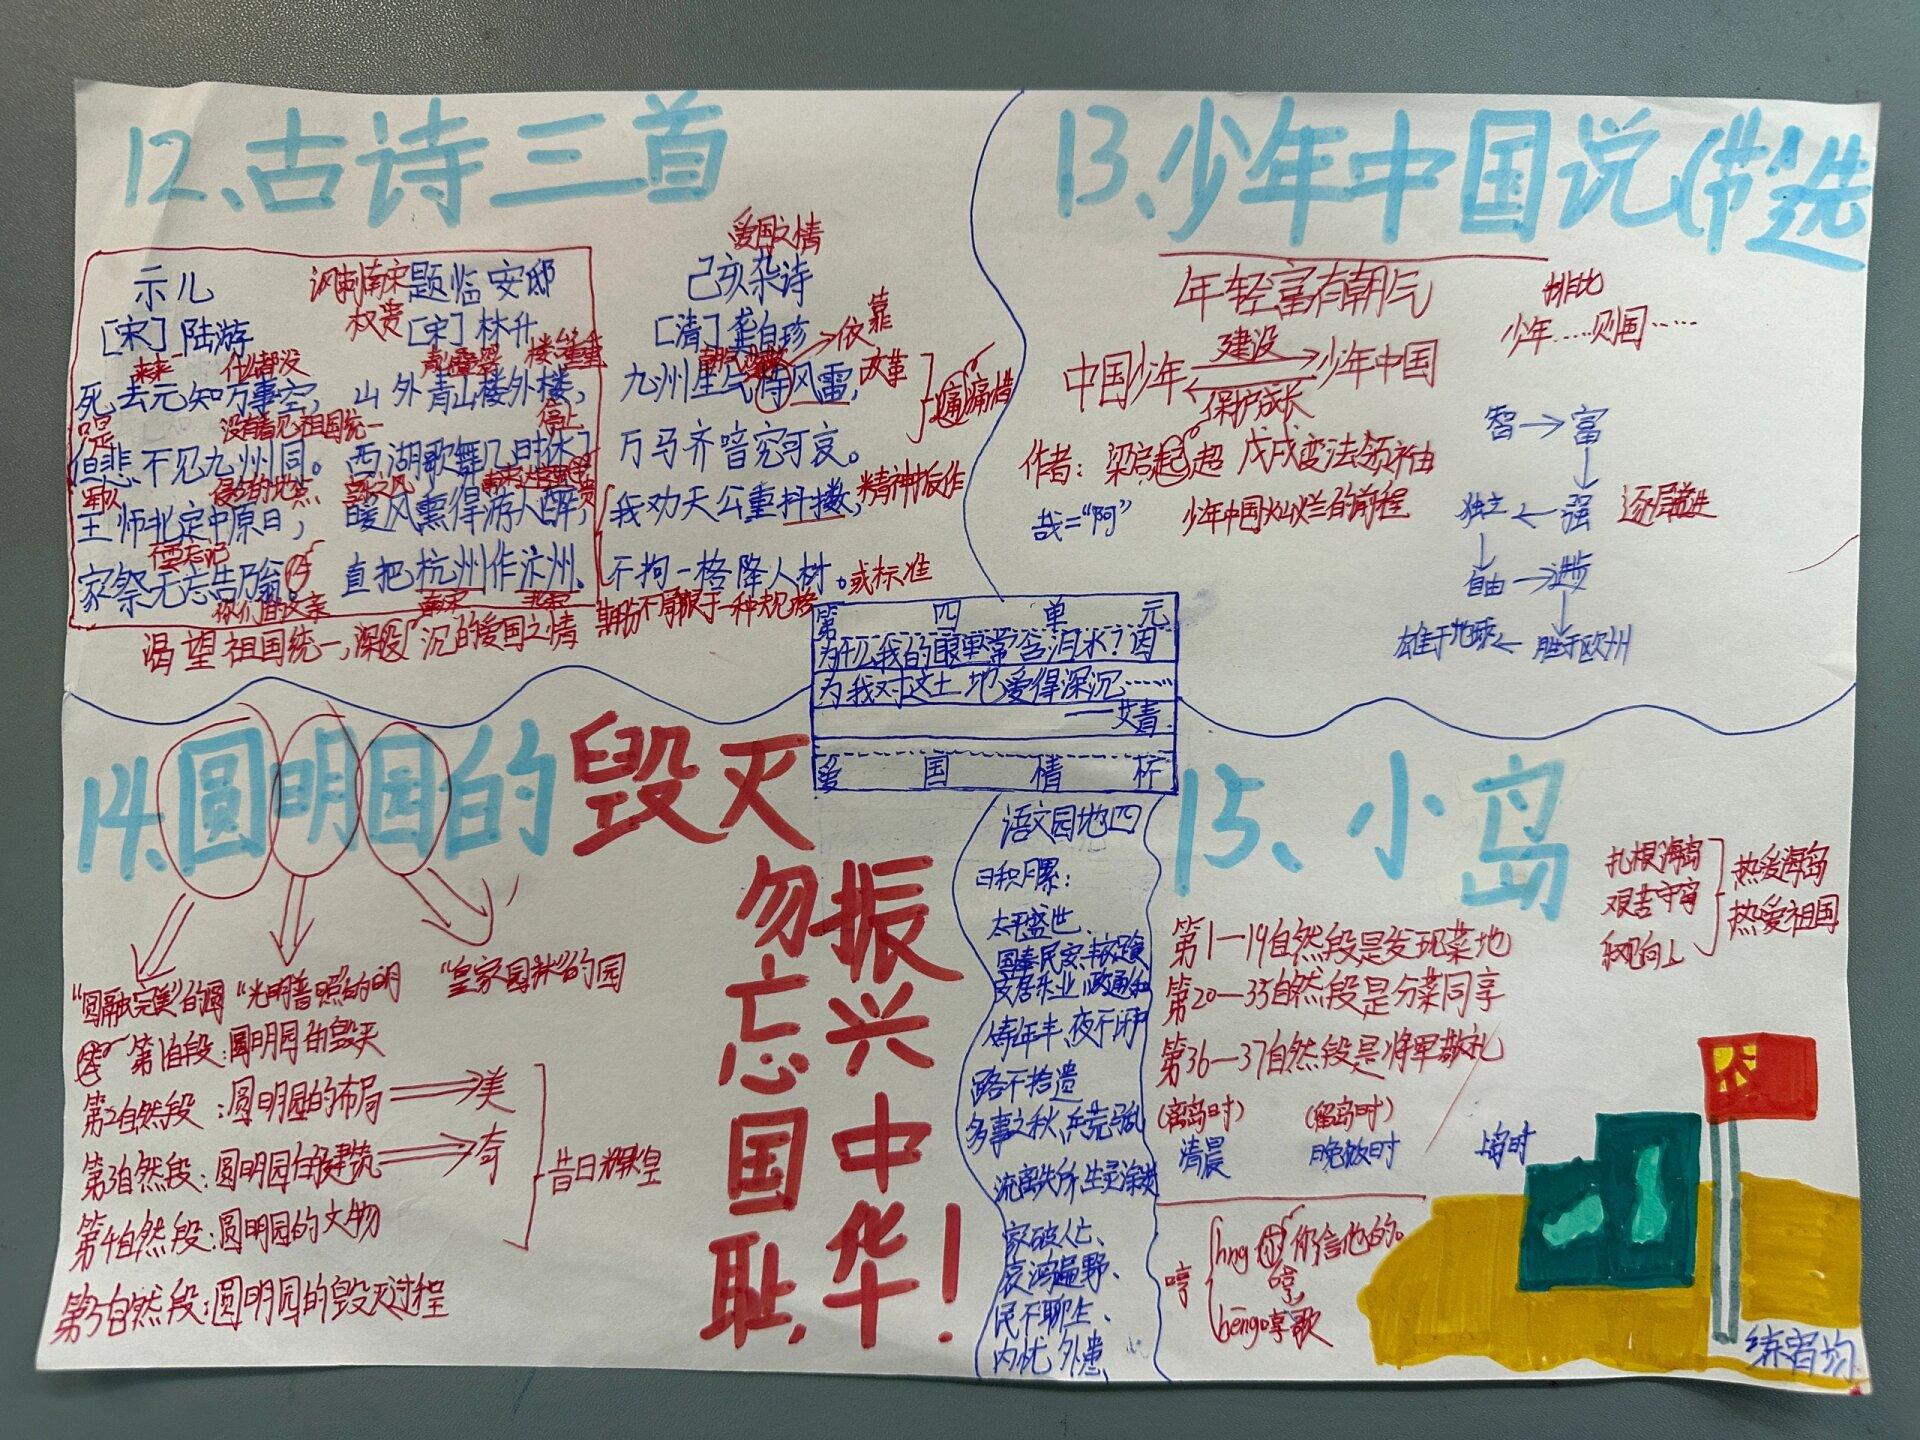 12、古诗三首
爱国之情
示儿
[宋]陆游
未来
什么都没
死去元知万事空，
没有看见祖国统一
但悲不见九州同。
王师北定中原日，
不要忘记
家祭无忘告乃翁。
你们的父亲
讽刺南宋
权贵
题临安邸
[宋]林升
山外青山楼外楼，
停止
西湖歌舞几时休？
暖风熏得游人醉，
直把杭州作汴州。
南宋 北宋
渴望祖国统一，深沉的爱国之情
己亥杂诗
[清]龚自珍
依靠
九州生气恃风雷，
改革
痛惜
万马齐喑究可哀。
我劝天公重抖擞，
精神振作
不拘一格降人材。
或标准
不局限于一种规格
13、少年中国说(节选
年轻富有朝气
排比
少年……则国……
建设
中国少年 少年中国
保护成长
作者：梁启超 戊戌变法领袖
哉="阿"
少年中国灿烂的前程
智→富
独立←强
逐层递进
自由→进步
雄于地球←胜于欧州
第四单元
为什么我的眼里常含泪水？因
为我对这土地爱得深沉……
——艾青
爱国情怀
14、圆明园的毁灭
勿忘国耻，
振兴中华！
"圆融完美"的圆 "光明普照"的明 "皇家园林"的园
第1自然段：圆明园的毁灭
第2自然段：圆明园的布局 美
第3自然段：圆明园 建筑 奇
第4自然段：圆明园的文物
第5自然段：圆明园的毁灭过程
昔日辉煌
语文园地四
日积月累：
太平盛世、
国泰民安、丰衣足食
安居乐业、政通人和
年丰、夜不闭户
路不拾遗
多事之秋、兵荒马乱
流离失所、生灵涂炭
家破人亡、
哀鸿遍野、
民不聊生、
内忧外患
15、小岛
扎根海岛
艰苦守岛
积极向上
热爱海岛
热爱祖国
第1—19自然段是发现菜地
第20—35自然段是分菜同享
第36—37自然段是将军敬礼
(离岛时) (留岛时)
清晨 晚饭时 上岛时
哼
hng 哼，你信他的。
hēng 哼歌